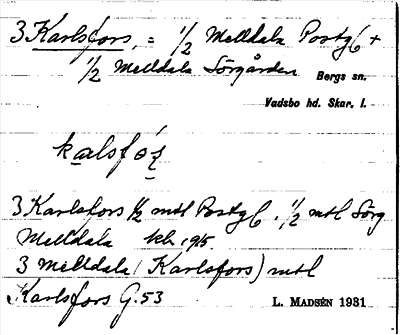 3 Karlsfors, = 1/2 Melldala Postg +
1/2 Melldala Sörgården Bergs sn.
Vadsbo hd. Skar. l.
kalsfós
3 Karlsfors 1/2 mtl Postg. 1/2 mtl Sörg
Melldala kb 1915.
3 Melldala (Karlsfors) mtl
Karlsfors G.53
L. MADSÉN 1931